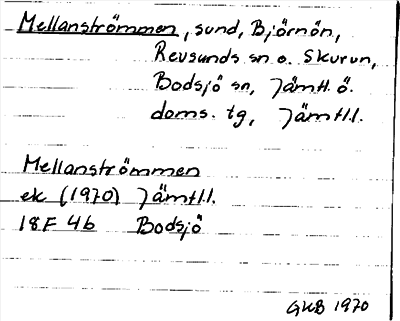 Mellanströmmen, sund, Björnön,
Revsunds sn o. Skurun,
Bodsjö sn, Jämtl. ö.
doms. tg, Jämtl.l.
Mellanströmmen
ek (1970) Jämtl.l.
18F 4b Bodsjö
GKB 1970